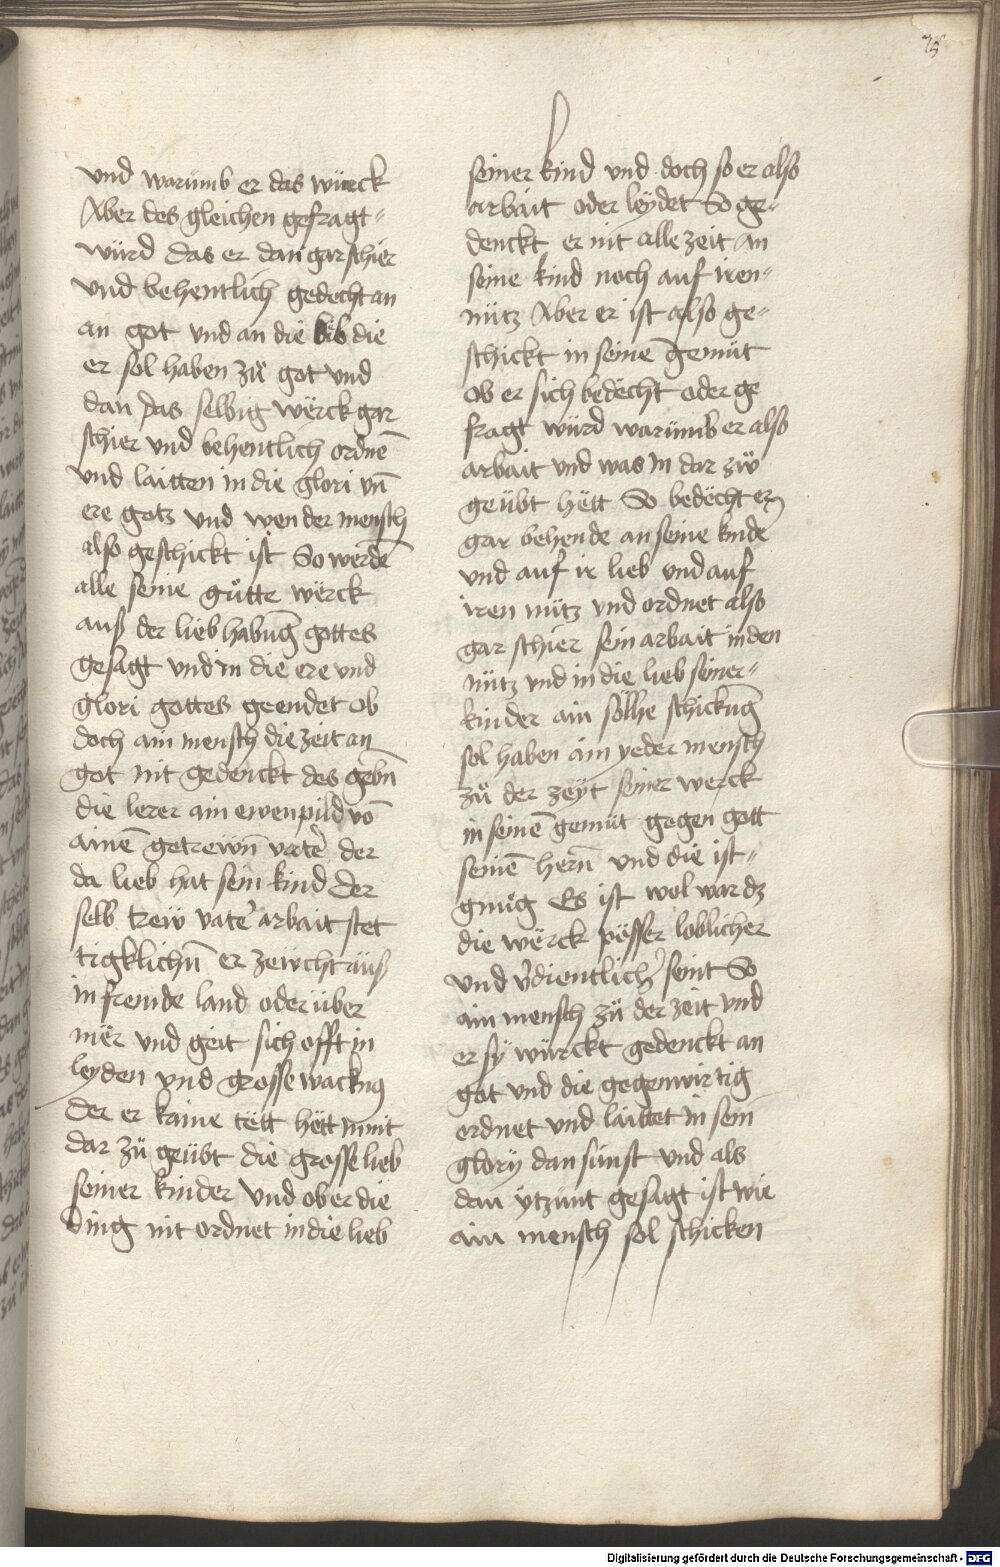 75
und warumb er das würck
Aber des gleichen gefragt"
würd das er dan gar schier
und behentlich gedecht an
an got und an die lieb die
er sol haben zů got und
dan das selbig wërck gar
schier und behentlich ordnē
und laitten in die glori vn̄
ere gotz und wen der mensch
also geschickt ist So werdē
alle seine gůtte wërck
auß der lieb habūg gottes
gesagt und in die ere und
glori gottes geendet ob
doch ain mensch die zeit an
got nit gedenckt des gebn̄
die lerer ain ewenpild vō
ainē getrewn̄ vatē der
da lieb hat sein kind der
selb trew vatē arbait stet
tigklichn̄ er zewcht auß
in fremde land oder über
mër und geit sich offt in
leyden und grosse
der er kaine tëtt hëtt in nit
dar zů geübt die grosse lieb
seiner kinder und ob er die
ding nit ordnet in die lieb
seiner kind und doch so er also
arbait oder leydet So ge-
denckt er nit alle zeit an
seine kind noch auf iren"
nütz Aber er ist also ge"
schickt in seinē gemüt
ob er sich bedëcht oder ge
fragt würd warumb er also
arbait und was in dar zů
geübt hëtt So bedëcht er
gar behende an seine kindē
und auf ir lieb und auf
iren nütz und ordnet also
gar schier sein arbait in den
nütz und in die lieb seiner"
kinder ain sölhe schickūg
sol haben ain yeder mensch
zů der zeyt seiner werck
in seinē gemüt gegen gott
seinē hern̄ und die ist"
gnůg Es ist wol war dz
die wërck pësser loblicher
und v̄dientlichē seint So
ain mensch zů der zeit und
er sy würckt gedenckt an
got und die gegenwirtig
ordnet und laittet in sein
glory dan sünst und als
dan ytzunt gesagt ist wie
ain mensch sol schicken
Digitalisierung gefördert durch die Deutsche Forschungsgemeinschaft - DFG